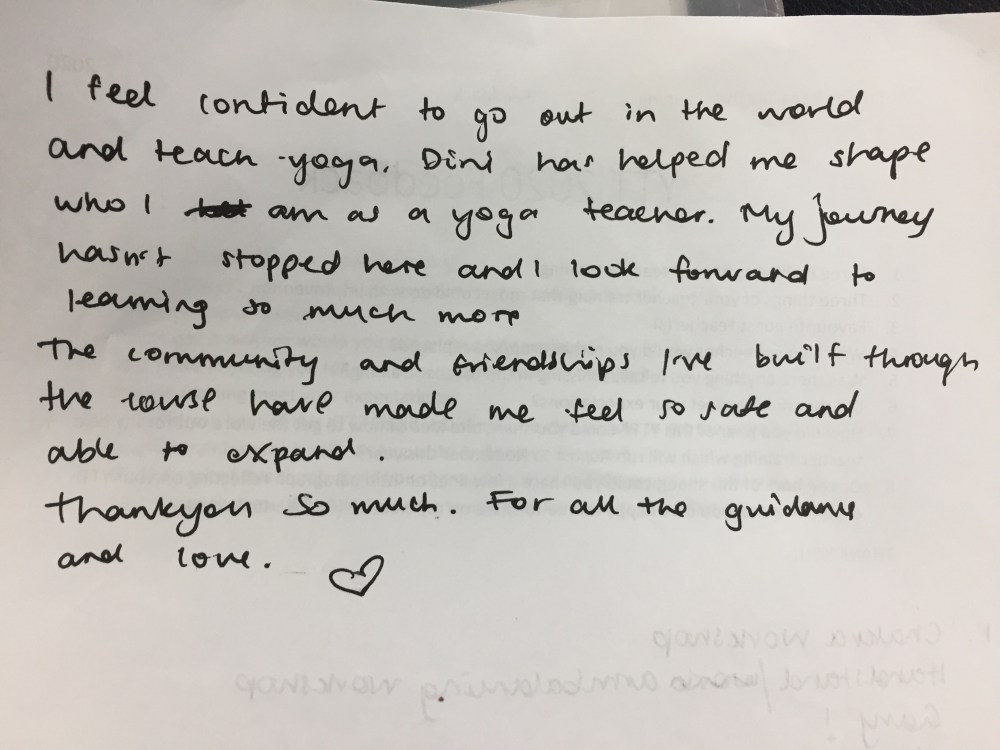 I feel confident to go out in the world
and teach yoga. Dini has helped me shape
who I am as a yoga teacher. My journey
hasn't stopped here and I look forward to
learning so much more
The community and friendships I've built through
the course have made me feel so safe and
able to expand.
Thankyou so much. For all the guidance
and love.